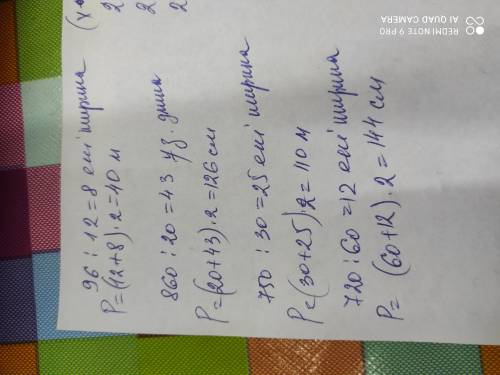 (х
2
2
2
96:12=8 ені ширина
P=(12+8)·2=40 м
860:20=43 уз. длина
P=(20+43)·2=126 см
750:30=25 ені ширина
P=(30+25)·2=110 м
720:60=12 ені ширина
P= (60+12)·2=144 см
REDMI NOTE 9 PRO
AI QUAD CAMERA